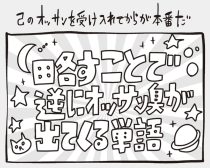 己のオッサンを受け入れてからが本番だ
略すことで
逆にオッサン臭が
出てくる単語